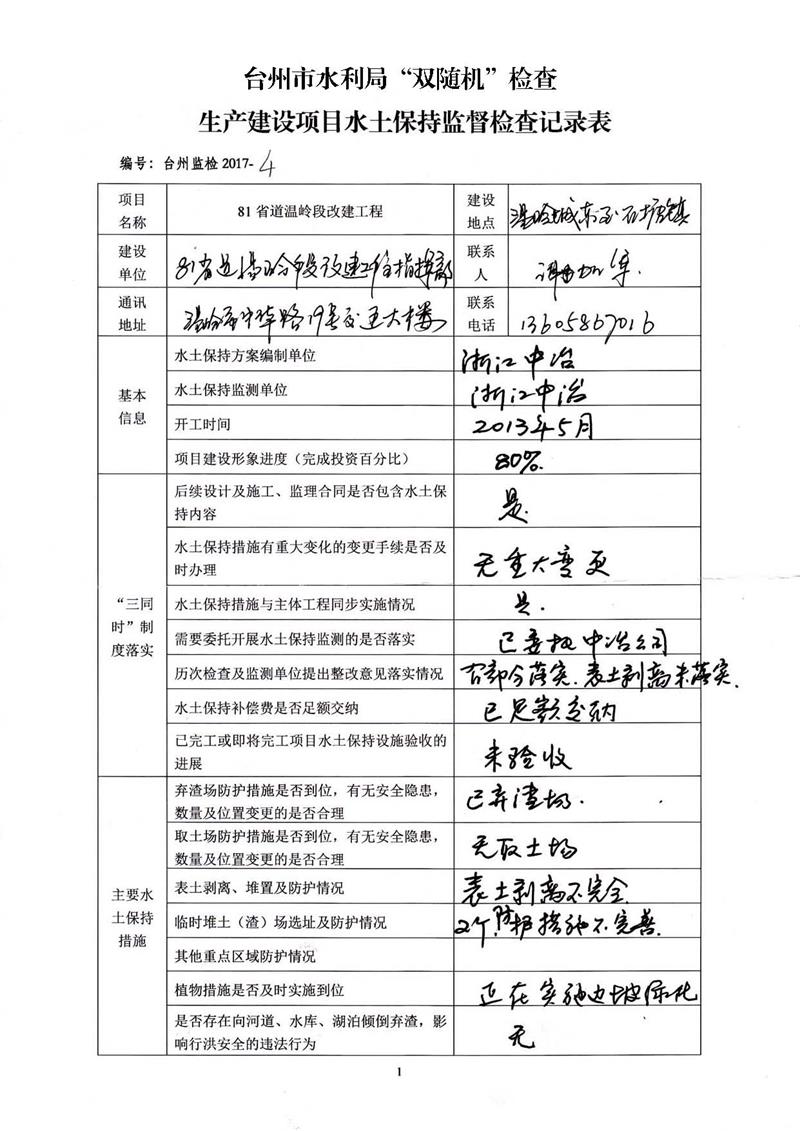 台州市水利局“双随机”检查
生产建设项目水土保持监督检查记录表
编号：台州监检 2017-4
项目
名称
81 省道温岭段改建工程
建设
地点
温岭城东至石塘镇
建设
单位
81省道温岭段改建工程指挥部
联系
人
通讯
地址
温岭市中华路19号交通大楼
联系
电话
13605867016
基本
信息
水土保持方案编制单位
浙江中冶
水土保持监测单位
浙江中冶
开工时间
2013年5月
项目建设形象进度（完成投资百分比）
80%
“三同
时”制
度落实
后续设计及施工、监理合同是否包含水土保
持内容
是
水土保持措施有重大变化的变更手续是否及
时办理
无重大变更
水土保持措施与主体工程同步实施情况
是.
需要委托开展水土保持监测的是否落实
已委托中冶公司
历次检查及监测单位提出整改意见落实情况
部分落实、表土剥离未落实.
水土保持补偿费是否足额交纳
已足额交纳
已完工或即将完工项目水土保持设施验收的
进展
未验收
主要水
土保持
措施
弃渣场防护措施是否到位，有无安全隐患，
数量及位置变更的是否合理
弃渣场.
取土场防护措施是否到位，有无安全隐患，
数量及位置变更的是否合理
无取土场
表土剥离、堆置及防护情况
表土剥离不完全
临时堆土（渣）场选址及防护情况
2个，防护措施不完善.
其他重点区域防护情况
植物措施是否及时实施到位
正在实施边坡绿化
是否存在向河道、水库、湖泊倾倒弃渣，影
响行洪安全的违法行为
无
1